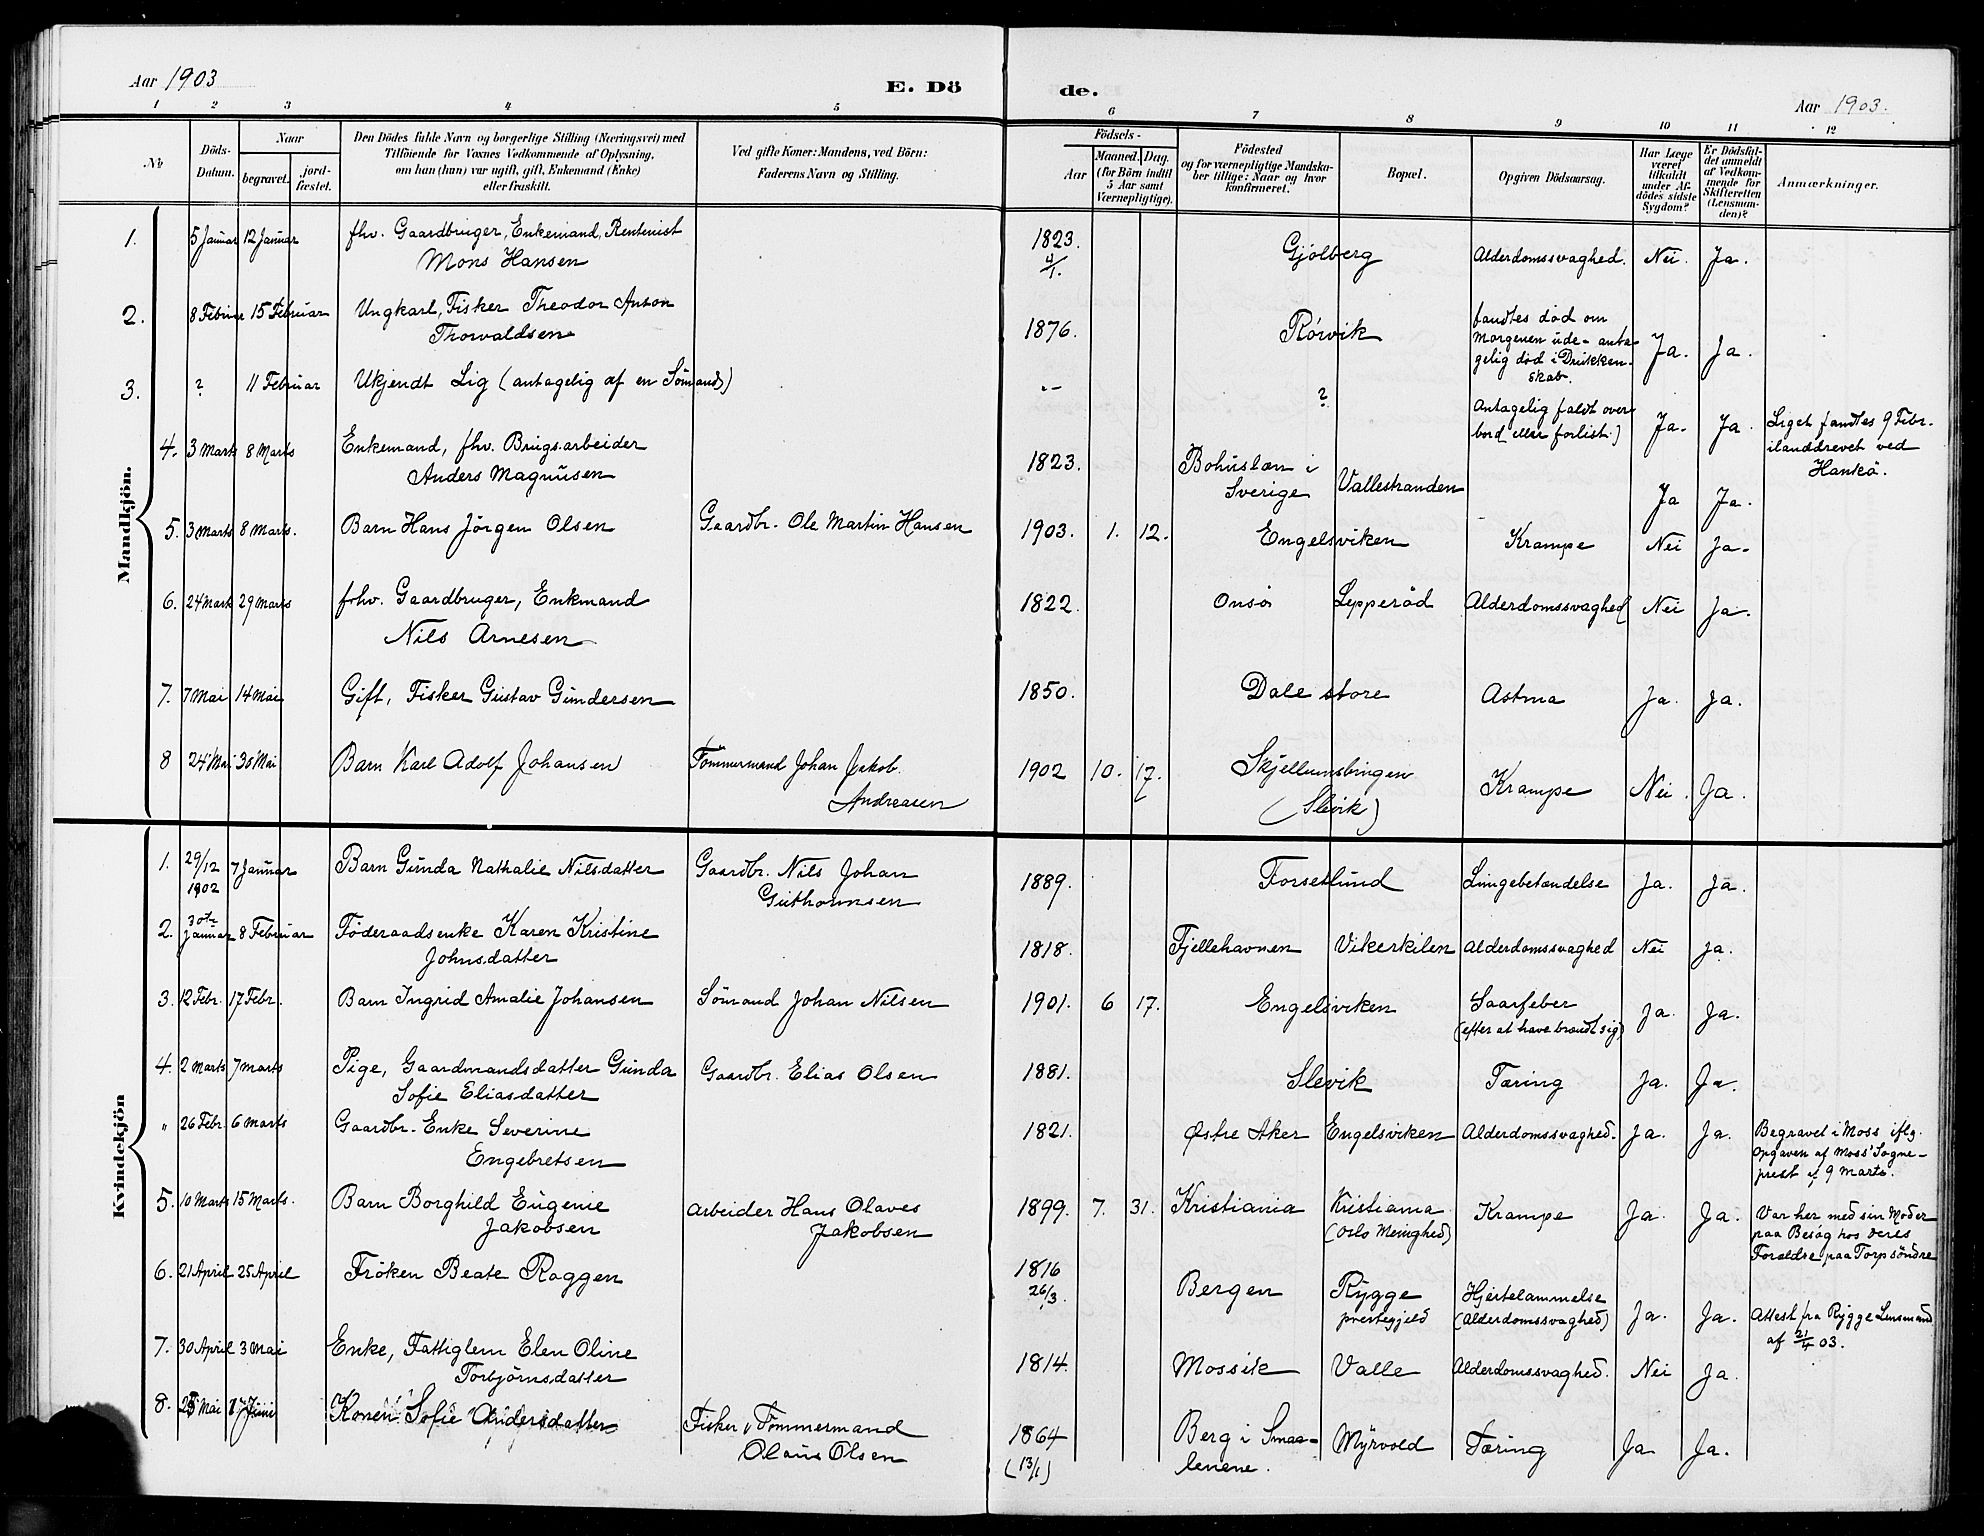 Aar 1903
E. Dö
de.
Aar 1903.
1 2 3 4 5 6 7 8 9 10 11 12
No
Döds-Datum.
Naar
begravet.
jord-fæstet.
Den Dödes fulde Navn og borgerlige Stilling (Næringsvei) med
Tilföiende for Voxnes Vedkommende af Oplysning,
om han (hun) var ugift, gift, Enkemand (Enke)
eller fraskilt.
Ved gifte Koner: Mandens, ved Börn:
Faderens Navn og Stilling.
Födsels-
Aar
Maaned. Dag.
(for Börn indtil
5 Aar samt
Værnepligtige).
Födested
og for værnepligtige Mandska-
ber tillige: Naar og hvor
konfirmeret.
Bopæl.
Opgiven Dödsaarsag.
Har Læge
været
tilkaldt
under Af-
dödes sidste
Sygdom?
Er Dödsfal-
det anmeldt
af Vedkom-
mende for
Skifteretten
(Lensman-
den)?
Anmærkninger.
Mandkjön.
1. 5 Januar 12 Januar fhv. Gaardbruger, Enkemand, Rentenist
Mons Hansen
1823. 4/1. Gjölberg Alderdomssvaghed. Nei. Ja.
2. 8 Februar 15 Februar Ungkarl, Fisker Theodor Anton
Thorvaldsen
1876. Rörvik
fandtes död om
Morgenen ude - anta-
gelig död i Drukken-
skab.
Ja. Ja.
3. ? 11 Februar Ukjendt Lig (antagelig af en Sömand)
"- ?
Antagelig faldt over-
bord eller forlist.)
Ja. Ja.
Liget fandtes 9 Febr.
ilanddrevet ved
Hankö.
4. 3 Marts 8 Marts Enkemand, fhv. Brugsarbeider
Anders Magnusen
1823. Bohuslæn i
Sverige
Vallestranden Ja Ja.
5. 3 Marts 8 Marts. Barn Hans Jörgen Olsen Gaardbr. Ole Martin Hansen 1903. 1. 12. Engelsviken Krampe Nei Ja.
6. 24 Marts 29 Marts fhv. Gaardbruger, Enkmand
Nils Arnesen
1822. Onsö Lepperöd Alderdomssvaghed Nei Ja.
7. 7 Mai 14 Mai Gift, Fisker Gustav Gundersen 1850. Dale store Astma Ja. Ja.
8 24 Mai 30 Mai Barn Karl Adolf Johansen Tömmermand Johan Jakob.
Andreasen
1902 10. 17. Skjellumsbingen
(Slevik)
Krampe Nei. Ja.
Kvindekjön
1. 29/12
1902
7 Januar Barn Gunda Nathalie Nilsdatter Gaardbr. Nils Johan
Guthormsen
1889. Forsetlund Lungebetændelse Ja. Ja.
2. 30te
Januar
8 Februar Föderaadsenke Karen Kristine
Johnsdatter
1818. Fjellehavnen Vikerkilen Alderdomssvaghed Nei Ja.
3. 12 Febr. 17 Febr. Barn Ingrid Amalie Johansen Sömand Johan Nilsen 1901. 6 17. Engelsviken Saarfeber
(efter at have brændt sig)
Ja. Ja.
4. 2 Marts 7 Marts Pige, Gaardmandsdatter Gunda
Sofie Eliasdatter
Gaardbr. Elias Olsen 1881. Slevik Tæring Ja. Ja.
" 26 Febr. 6 Marts Gaardbr. Enke Severine
Engebretsen
1821. Østre Aker Engelsviken Alderdomssvaghed. Ja. Ja.
Begravet i Moss iflg.
Opgaven af Moss' Sogne-
prest af 9 Marts.
5. 10 Marts 15 Marts. Barn Borghild Eugenie
Jakobsen
Arbeider Hans Olaves
Jakobsen
1899. 7. 31. Kristiania Kristiania
(Oslo Menighed)
Krampe Ja. Ja.
Var her med sin Moder
paa Besög hos deres
Forældre paa Torp söndre
6. 21 April 25 April Fröken Beate Roggen
1816
26/3.
Bergen Rygge
prestegjeld
Hjertelammelse
(Alderdomssvaghed)
Ja. Ja.
Attest fra Rygge Lensmand
af 21/4 03.
7. 30 April 3 Mai Enke, Fattiglem Elen Oline
Torbjörnsdatter
1814. Mossek Valle Alderdomssvaghed. Nei Ja.
8. Mai Juni Konen Sofie Andersdatter Fisker, Tömmermand
Olaus Olsen
1864
(13/1)
Berg i Smaa-
lenene.
Myrvold Tæring Ja Ja.